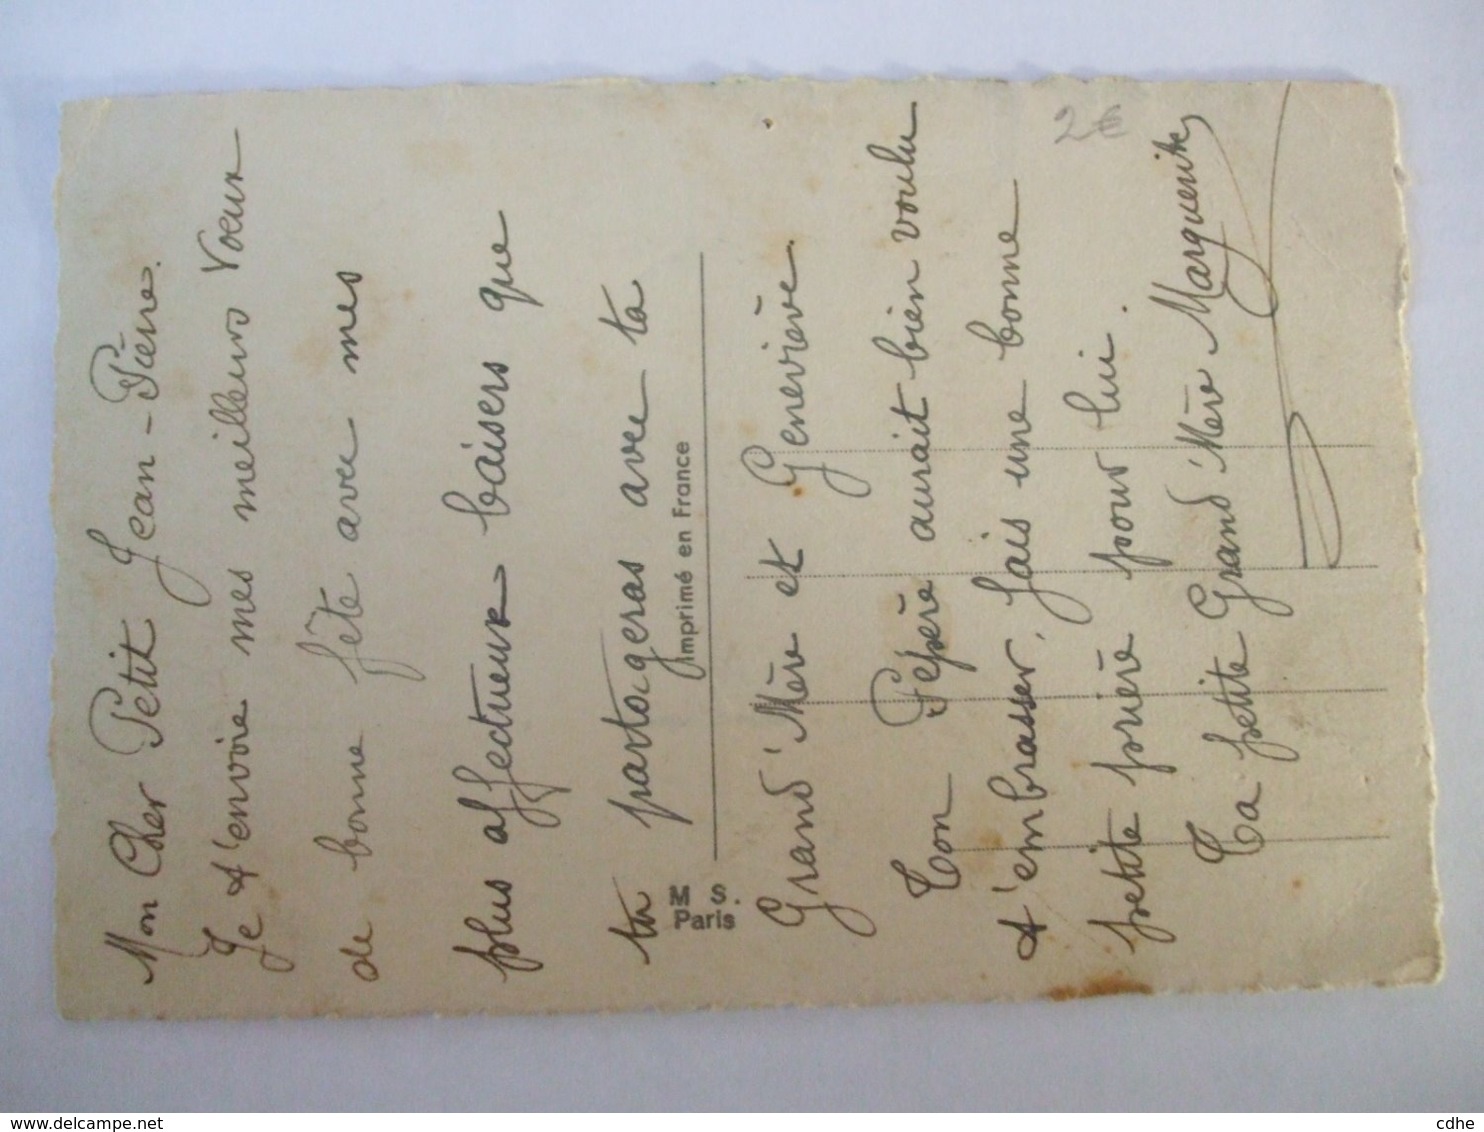 Mon Cher Petit Jean-Pierre.
Je t'envoie mes meilleurs Voeux
de bonne fête avec mes
plus affectueux baisers que
tu partageras avec ta
Imprimé en France
M S.
Paris
Grand'Mère et Geneviève.
Ton Pépère aurait bien voulu
t'embrasser, fais une bonne
petite prière pour lui.
Ta petite Grand'Mère Marguerite
2€
www.delcampe.net
cdhe